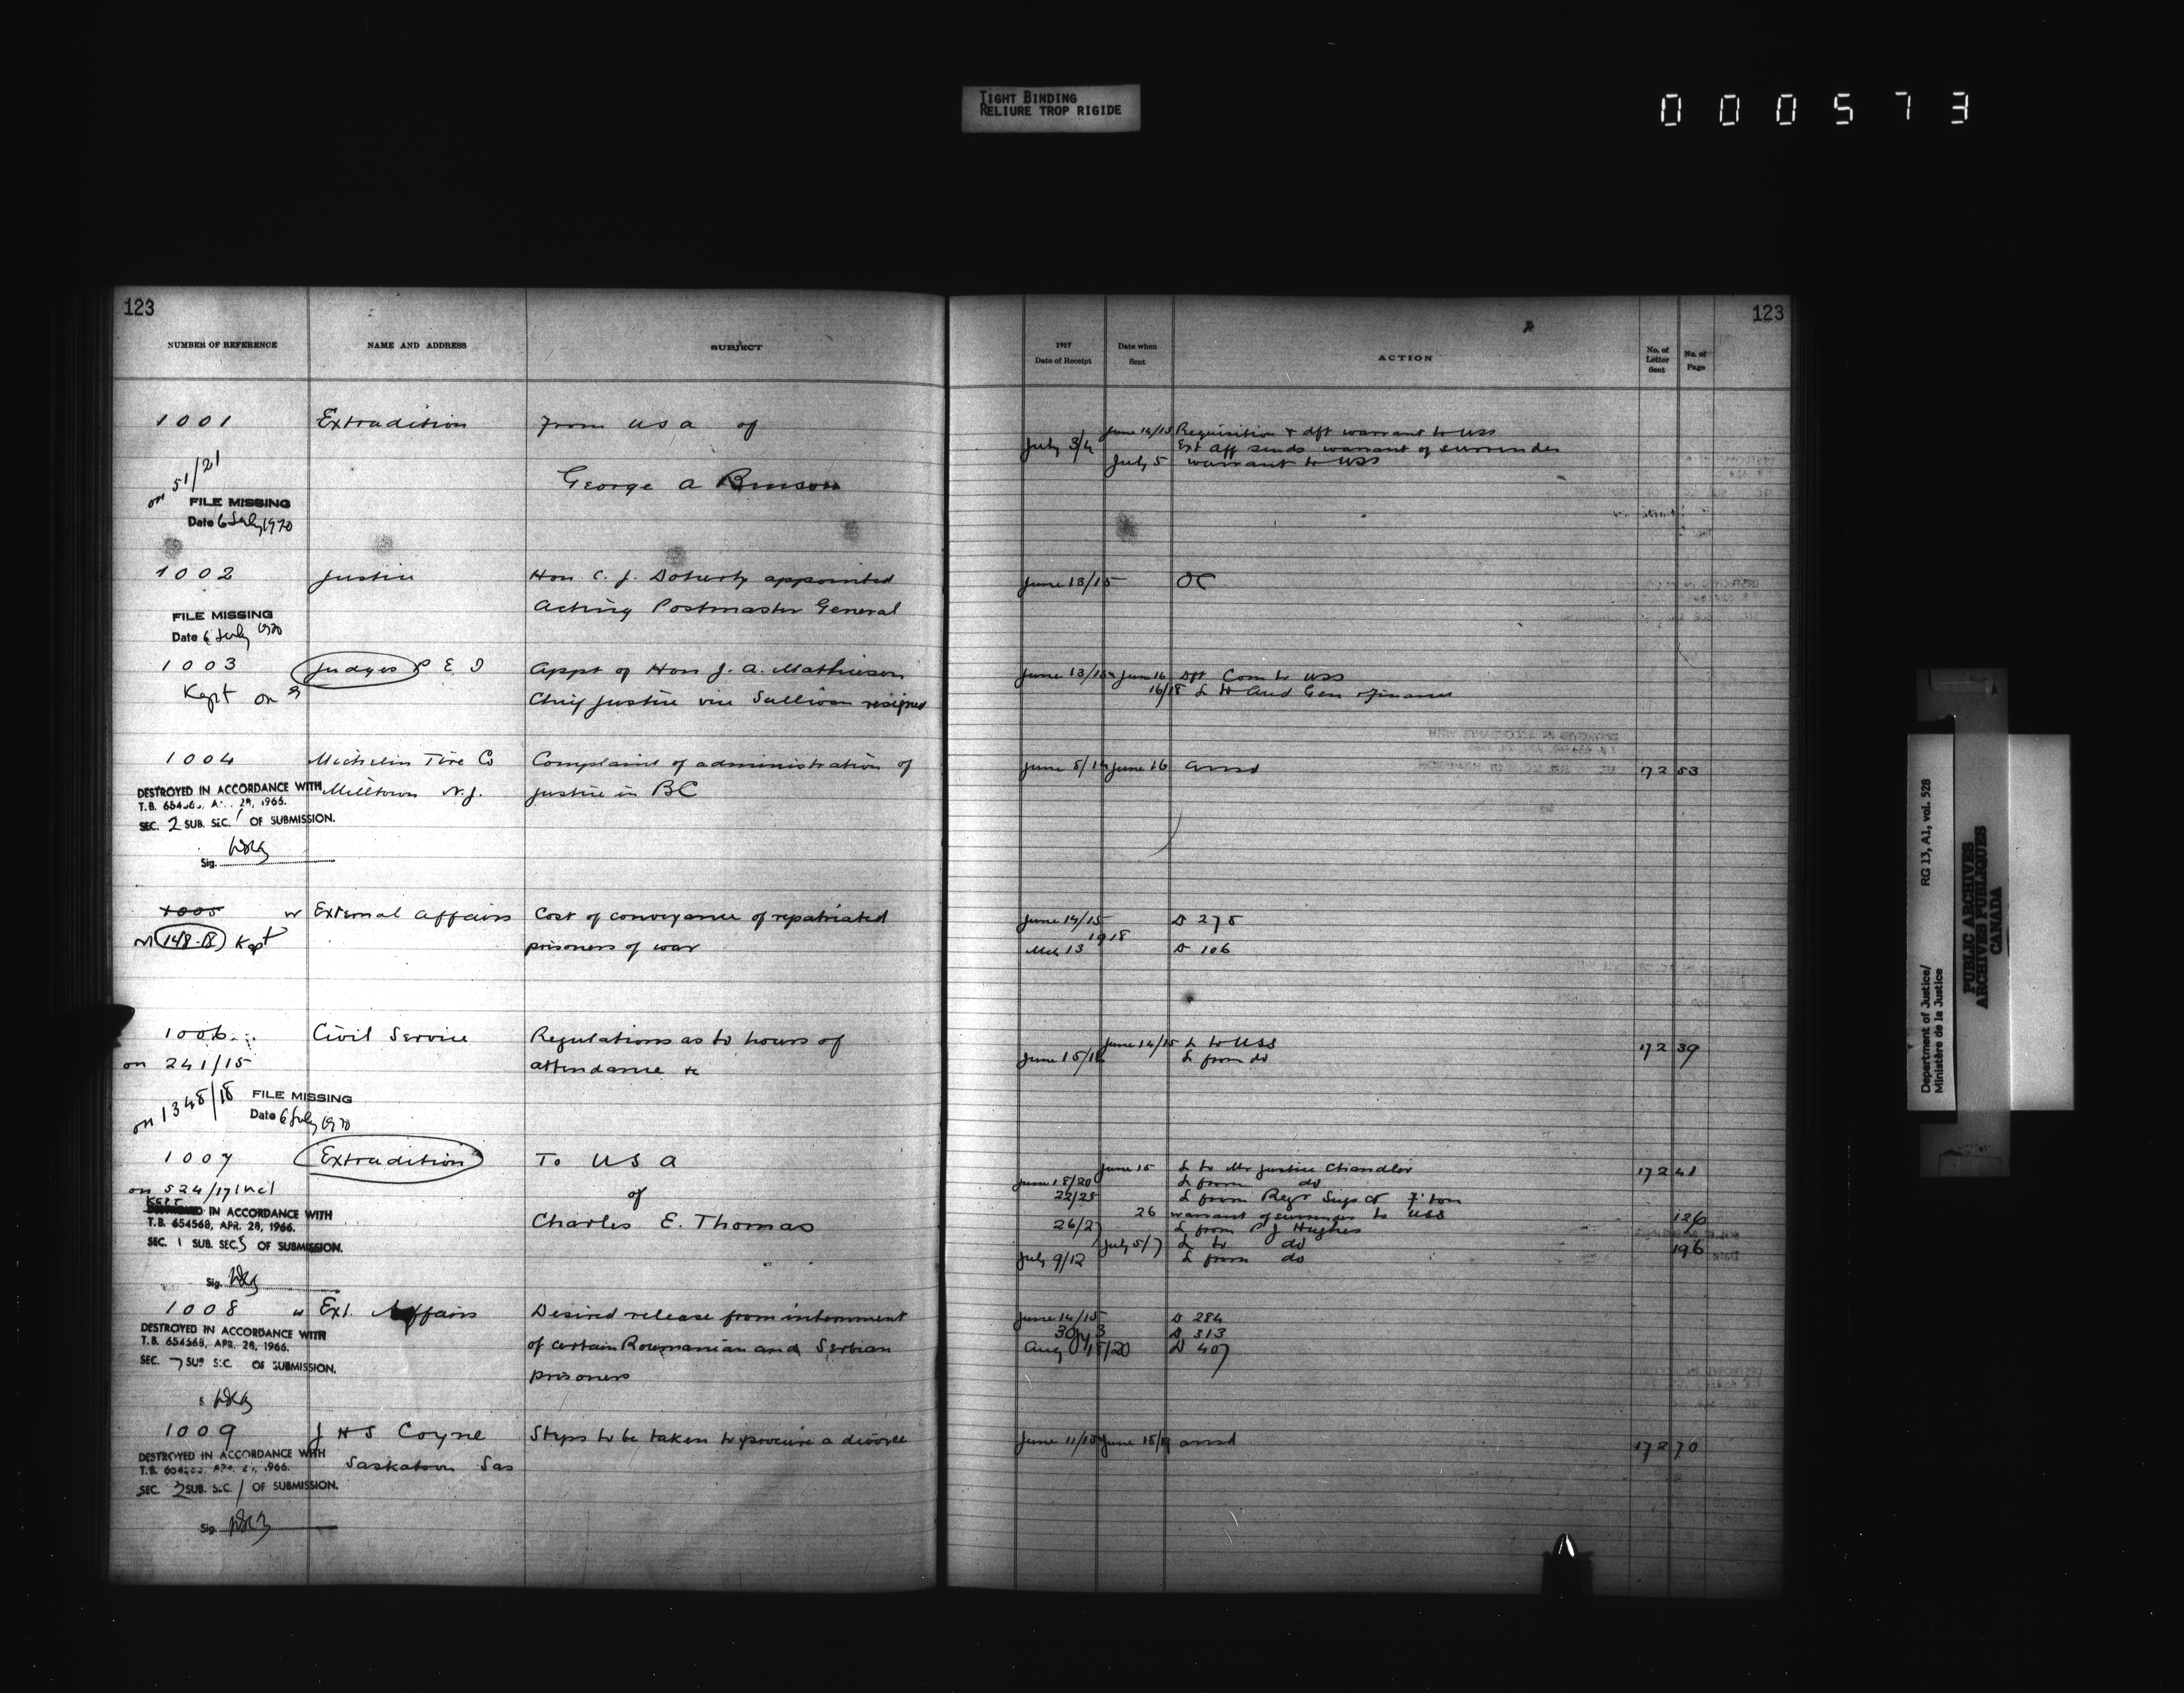 TIGHT BINDING
RELIURE TROP RIGIDE
000573
123
NUMBER OF REFERENCE NAME AND ADDRESS SUBJECT
1001 Extradition From USA of
on 51/21
George A
FILE MISSING
Date 6 July 1970
1002 Justice Hon. C. J. Doherty appointed
Acting Postmaster General
FILE MISSING
Date 6 July 1970
1003 Judges P E I Appt of Hon J. A. Mathieson
Kept on Chief Justice vice Sullivan resigned
1004 Michelin Tire Co Complaint of administration of
Milltown N.J. justice in BC
DESTROYED IN ACCORDANCE WITH
T.B. 654568, APR. 28, 1966.
SEC. 2 SUB. SEC. 1 OF SUBMISSION.
Sig.
1005 w External Affairs Cost of conveyance of repatriated
on 148-18 Kept prisoners of war
1006 Civil Service Regulations as to hours of
on 241/15 attendance &c
on 1348/18
FILE MISSING
Date 6 July 1970
1007 Extradition To USA
on 524/17 Incl of
Charles E. Thomas
KEPT
IN ACCORDANCE WITH
T.B. 654568, APR. 28, 1966.
SEC. 1 SUB. SEC. 5 OF SUBMISSION.
Sig.
1008 w Ext. Affairs Desired release from internment
of certain Roumanian and Serbian
prisoners
DESTROYED IN ACCORDANCE WITH
T.B. 654568, APR. 28, 1966.
SEC. 7 SUB. SEC. OF SUBMISSION.
1009 J H S Coyne Steps to be taken to procure a divorce
Saskatoon Sas
DESTROYED IN ACCORDANCE WITH
T.B. 654568, APR. 28, 1966.
SEC. 2 SUB. SEC. 1 OF SUBMISSION.
Sig.
123
1917 Date of Receipt Date when Sent ACTION No. of Letter Sent No. of Page
June 14/15 Requisition & dft warrant to USS
July 3/4 Ext Aff sends warrant of surrender
July 5 warrant to USS
June 13/15 OC
June 13/15 June 16 Dft Com to USS
16/18 L to Aud Gen & Finance
June 8/14 June 16 ansd 172 53
June 14/15 D 275
1918
Mch 13 D 106
June 14/15 L to USS 172 39
June 15/16 L from do
June 15 L to Mr Justice Chandler 172 41
June 18/20 L from do
22/25 L from Regr Sup Ct F'ton
26 warrant of surrender to USS 126
26/27 L from P J Hughes
July 5/7 L to do 196
July 9/12 L from do
June 14/15 D 284
30/Jy 3 D 313
Aug 18/20 D 407
June 11/15 June 18/19 ansd 172 70
Department of Justice/
Ministère de la Justice
RG 13, A1, vol. 528
PUBLIC ARCHIVES
ARCHIVES PUBLIQUES
CANADA